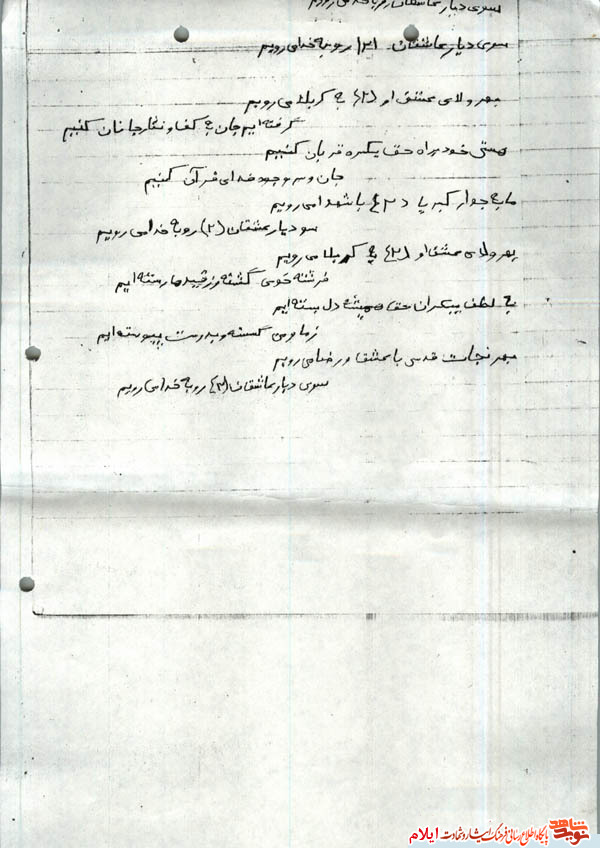 سوی دیار عاشقان رو به خدا می رویم
سوی دیار عاشقان (۲) رو به خدا می رویم
بهر ولای عشق او (۲) به کربلا می رویم
گرفته ایم جان به کف و نگار جانان کنیم
هستی خود براه حق یکسره قربان کنیم
جان و سر وجود فدای قرآن کنیم
ما به جوار کبریا (۲) با شهدا می رویم
سو دیار عشقان (۲) رو به خدا می رویم
بهر ولای عشق او (۲) به کربلا می رویم
فرشته خوی گشته و ز قیدها رسته ایم
به لطف بیکران حق همیشه دل بسته ایم
ز ما و من گسسته و بدوست پیوسته ایم
بهر نجات قدس با عشق و رضا می رویم
سوی دیار عاشقان (۲) رو به خدا می رویم
نوید شاهد پایگاه اطلاع رسانی فرهنگ ایثار و شهادت ایلام